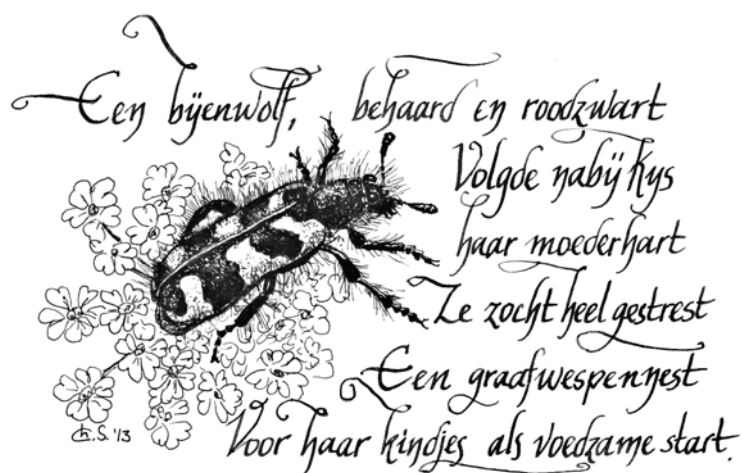 Een bijenwolf, behaard en roodzwart
Volgde nabij Kys
haar moederhart
Ze zocht heel gestrest
Een graafwespennest
Voor haar kindjes als voedzame start.
Ch.S. '13